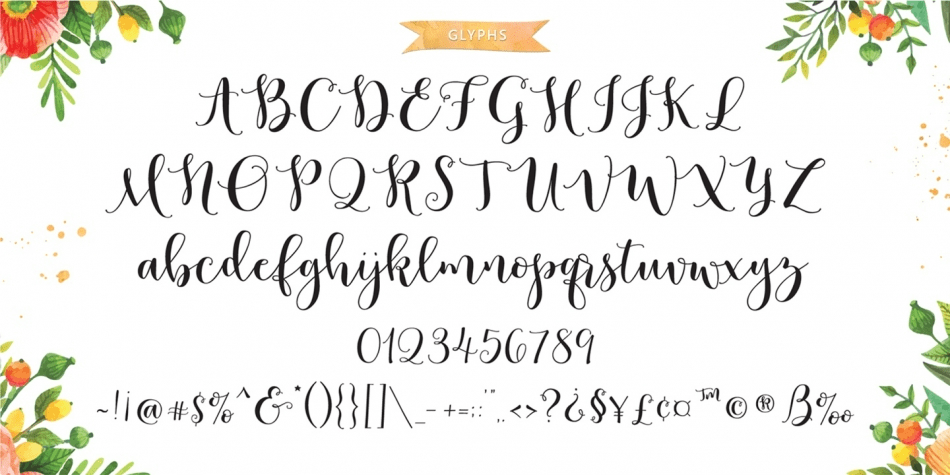 GLYPHS
ABCDEFGHIJKL
MNOPQRSTUVWXYZ
abcdefghijklmnopqrstuvwxyz
0123456789
~!¡@#$%^&*(){}[]\_-+=;:'",.<>?¿§¥£¢¤™©®ß‰